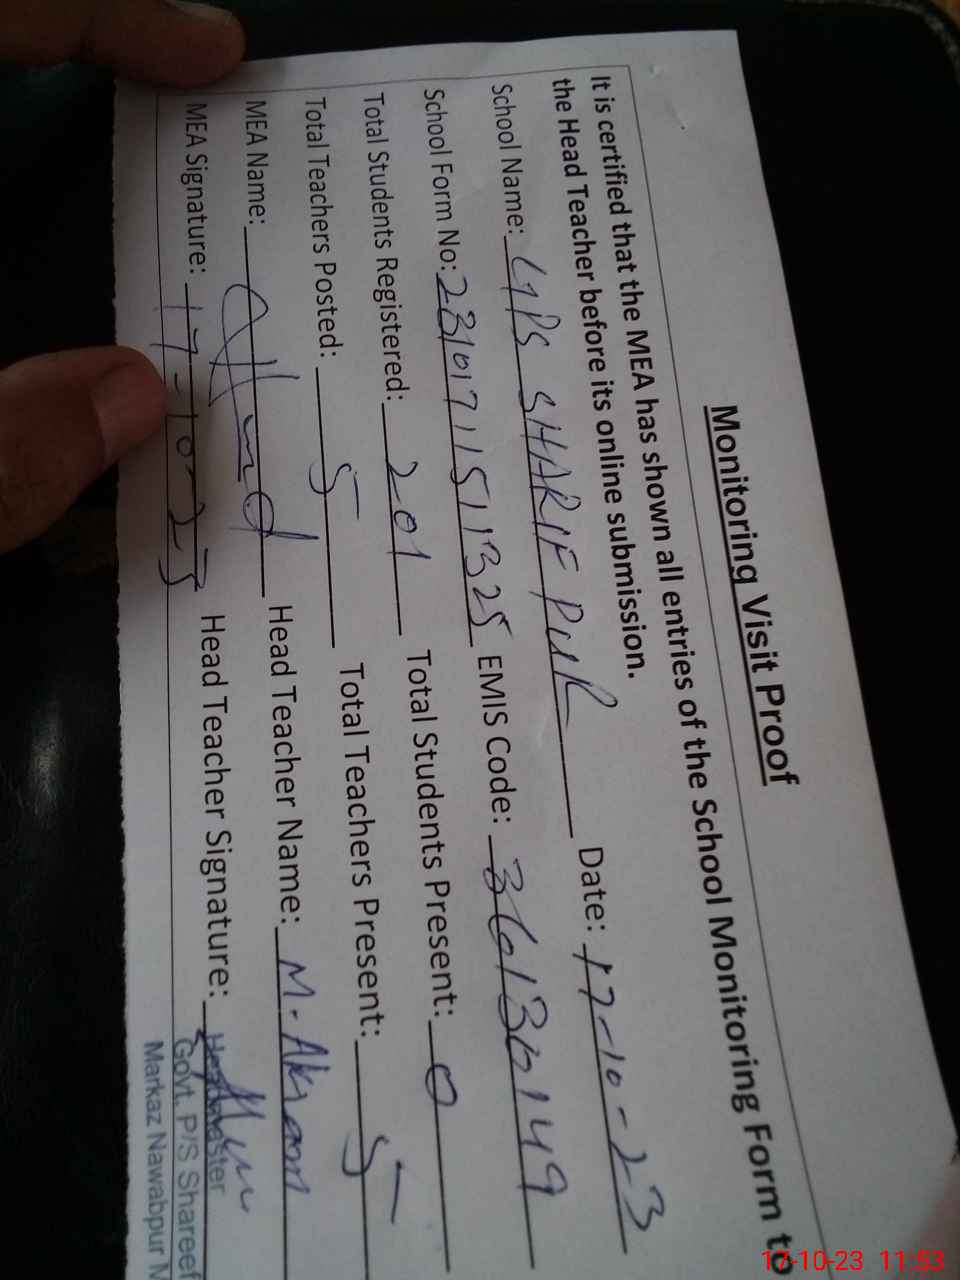 Monitoring Visit Proof
It is certified that the MEA has shown all entries of the School Monitoring Form to
the Head Teacher before its online submission.
School Name: GPS SHARIF PUR Date: 17-10-23
School Form No: 23101711511325 EMIS Code: 36130149
Total Students Registered: 201 Total Students Present: 0
Total Teachers Posted: 5 Total Teachers Present: 5
MEA Name: Head Teacher Name: M. Akram
MEA Signature: 17-10-23 Head Teacher Signature:
Headmaster
Govt. P/S Shareef
Markaz Nawabpur M
17-10-23 11:53